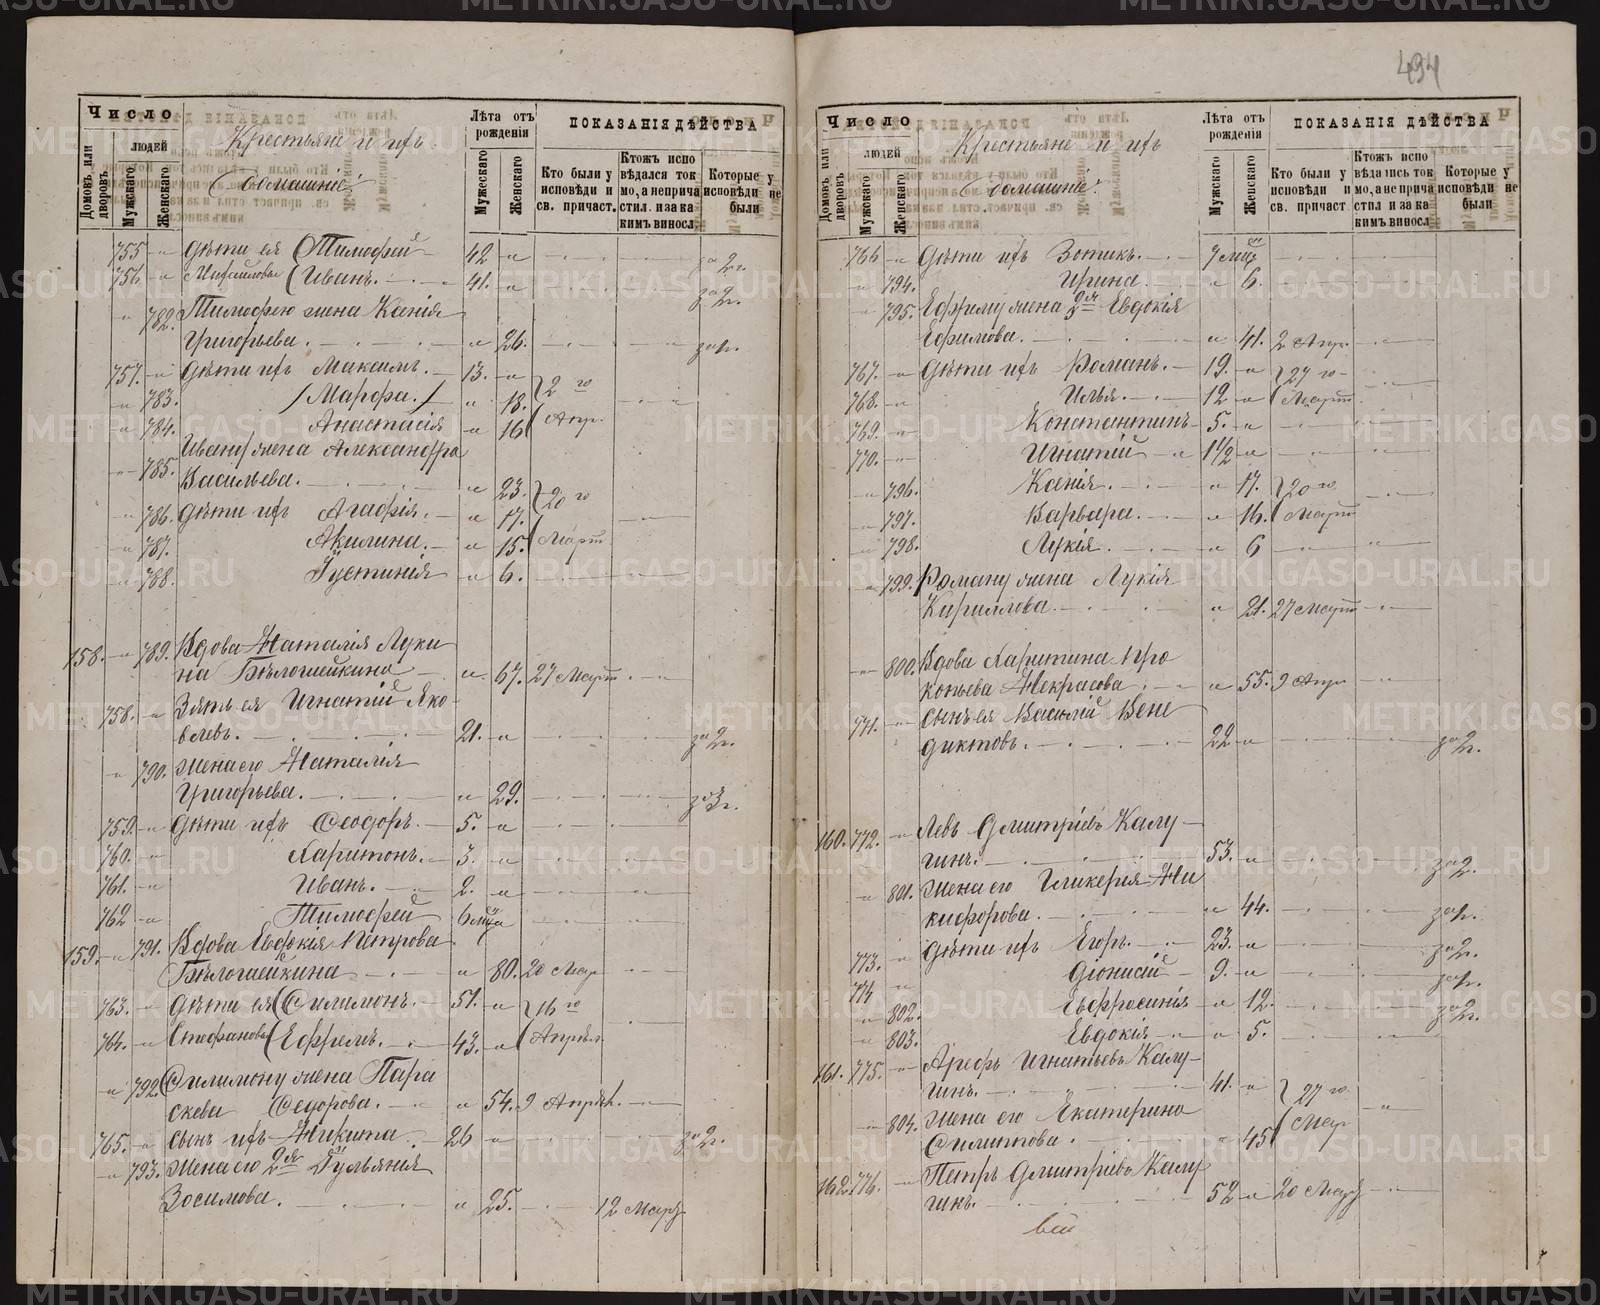 494
Число
людей
Домовъ или дворовъ.
Мужскаго
Женскаго
Крестьяне и ихъ
домашніе:
Лѣта отъ рожденія
Мужескаго
Женскаго
ПОКАЗАНІЯ ДѢЙСТВА
Кто были у исповѣди и св. причаст.
Ктожъ исповѣдался токмо, а не причастил. и за какимъ винosл.
Которые у исповѣди не были
755 - дѣти ея Тимофей 42 за 2 г.
756 - Михайловы Иванъ. 41. за 2 г.
782. Тимофею жена Ксенія
Григорьева. 26.
757. - дѣти ихъ Максимъ. 13. 2 го
783. Марфа. 18. Апр.
784. Анастасія 16
Ивану жена Александра
785. Васильева. 23. 20 го
786. дѣти ихъ Агафія. 17. Март
787. Акилина. 15.
788. Іустинія 6.
158. 789. Вдова Наталія Луки
на Бѣлогашкина 67. 27 Март
758. Зять ея Игнатій Яко-
влевъ. 21. за 2 г.
790. жена его Наталія
Григорьева. 29. за 3 г.
759. дѣти ихъ Ѳеодоръ. 5.
760. Харитонъ. 3.
761. Иванъ. 2.
762 Тимофей 6 мѣ
159. 791. Вдова Евдокія Петрова
Бѣлогашкина 80. 20 Мар
763. дѣти ея Филимонъ. 57. 16 го
764. Стефановы Ефремъ. 43. Апрѣл
792. Филимону жена Пара
скева Ѳедорова. 54. 9 Апрѣл.
765. сынъ ихъ Никита 26 за 2 г.
793. жена его 2я Іульянія
Зосимова. 25. 12 Март
Число
людей
Домовъ или дворовъ.
Мужскаго
Женскаго
Крестьяне и ихъ
домашніе:
Лѣта отъ рожденія
Мужескаго
Женскаго
ПОКАЗАНІЯ ДѢЙСТВА
Кто были у исповѣди и св. причаст
Ктожъ исповѣдался токмо, а не причастил и за какимъ виносл.
Которые у исповѣди не были
766 дѣти ихъ Зотикъ. 7 мѣц
794. Ирина. 6.
795. Ефрему жена 2я Евдокія
Ефимова. 41. 2 Апр.
767. дѣти ихъ Романъ. 19. 27 го
768. Илья. 12 Март
769. Константинъ 5.
770. Игнатій 1 1/2
796. Ксенія. 17. 20 го
797. Варвара. 16. Март
798. Лукія. 6
799. Роману жена Лукія
Кириллова. 21. 27 Март
800. Вдова Харитина Про
копьева Некрасова 55. 9 Апр
771. сынъ ея Василій Вене
диктовъ. 22 за 2 г.
160. 772. Левъ Дмитріевъ Калу-
гинъ. 53. за 2.
801. жена его Гликерія Ни
кифорова. 44.
773. дѣти ихъ Егоръ. 23. за 2 г.
774 Діонисій 9.
802. Евфросинія 12. за 2 г.
803. Евдокія 5.
161. 775. Арефъ Игнатьевъ Калу-
гинъ. 41. 27 го
804. жена его Екатерина
Филипова. 45 Мар
162. 776. Петръ Дмитріевъ Калу
гинъ. 52 20 Март